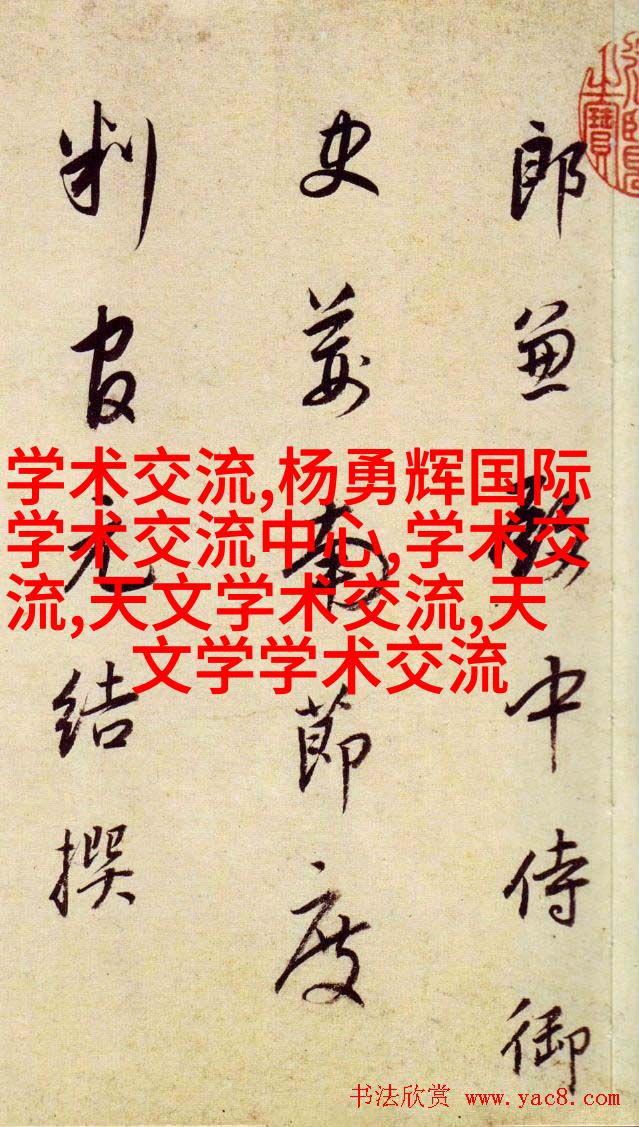 郎兼殿中侍御
史荊南節度
判官元結撰
学术交流,杨勇辉国际
学术交流中心,学术交
流,天文学术交流,天
文学学术交流
书法欣赏 www.yac8.com